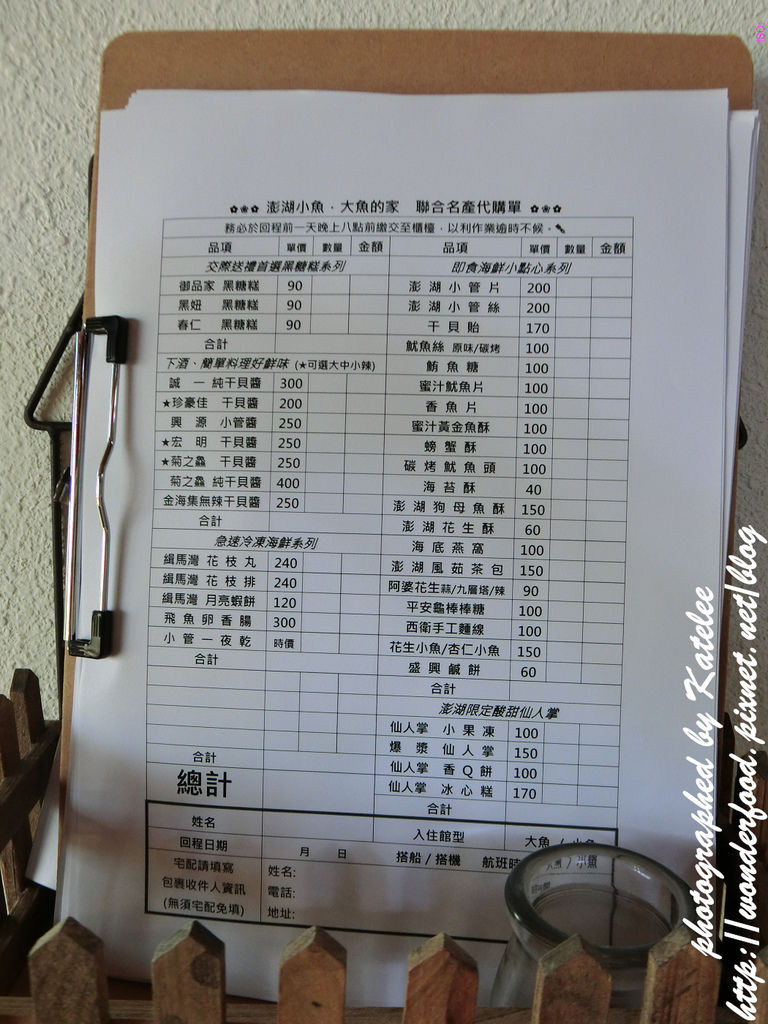 ✿❀✿ 澎湖小魚．大魚的家 聯合名產代購單 ✿❀✿
務必於回程前一天晚上八點前繳交至櫃檯，以利作業逾時不候。
品項 單價 數量 金額 品項 單價 數量 金額
交際送禮首選黑糖糕系列
御品家 黑糖糕 90
黑妞 黑糖糕 90
春仁 黑糖糕 90
合計
下酒、簡單料理好鮮味 (★可選大中小辣)
誠一純干貝醬 300
★珍豪佳 干貝醬 200
興源 小管醬 250
★宏明 干貝醬 250
★菊之鱻 干貝醬 250
菊之鱻 純干貝醬 400
金海集無辣干貝醬 250
合計
急速冷凍海鮮系列
緝馬灣 花枝丸 240
緝馬灣 花枝排 240
緝馬灣 月亮蝦餅 120
飛魚卵香腸 300
小管一夜乾 時價
合計
合計
總計
即食海鮮小點心系列
澎湖小管片 200
澎湖小管絲 200
干貝貽 170
魷魚絲 原味/碳烤 100
鮪魚糖 100
蜜汁魷魚片 100
香魚片 100
蜜汁黃金魚酥 100
螃蟹酥 100
碳烤魷魚頭 100
海苔酥 40
澎湖狗母魚酥 150
澎湖花生酥 60
海底燕窩 100
澎湖風茹茶包 150
阿婆花生蒜/九層塔/辣 90
平安龜棒棒糖 100
西衛手工麵線 100
花生小魚/杏仁小魚 150
盛興鹹餅 60
合計
澎湖限定酸甜仙人掌
仙人掌 小果凍 100
爆漿仙人掌 150
仙人掌 香Q餅 100
仙人掌 冰心糕 170
合計
姓名 入住館型 大魚 / 小魚
回程日期 月 日 搭船 / 搭機 航班時
宅配請填寫
包裹收件人資訊
(無須宅配免填)
姓名:
電話:
地址:
photographed by Katelee
http://wonderfood.pixnet.net/blog